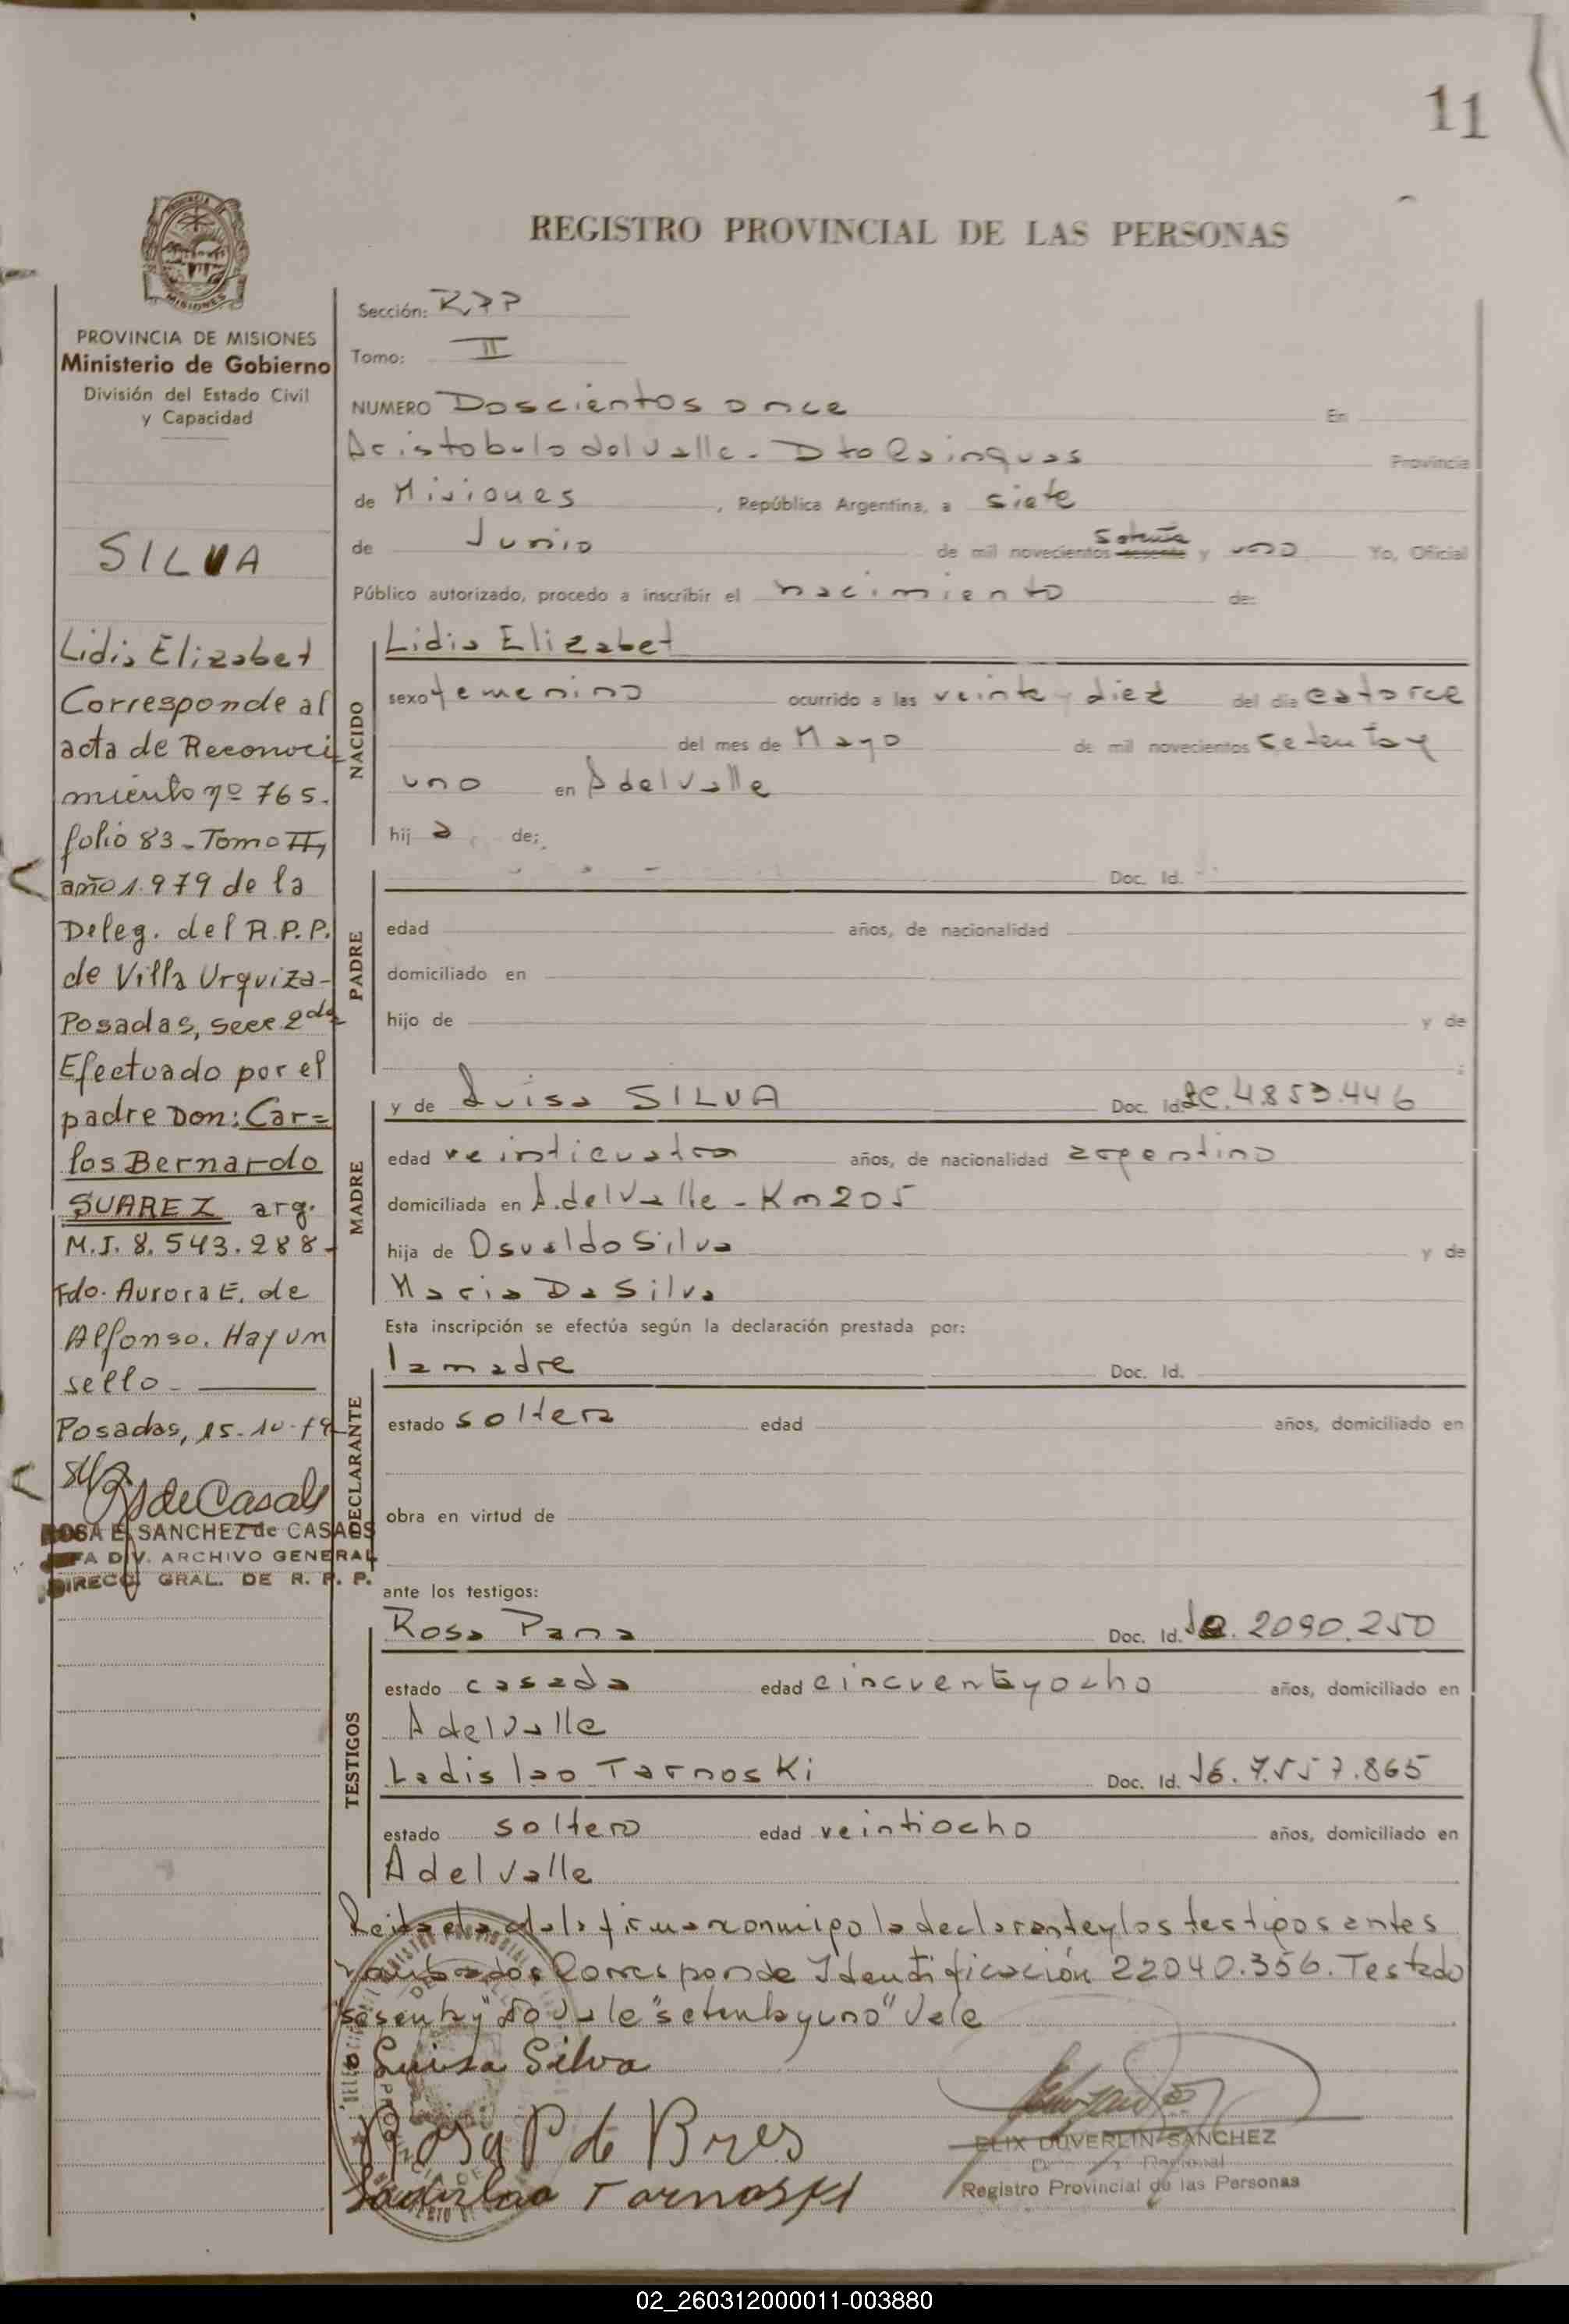 11
REGISTRO PROVINCIAL DE LAS PERSONAS
MISIONES
PROVINCIA DE MISIONES
Ministerio de Gobierno
División del Estado Civil
y Capacidad
SILVA
Lidia Elizabet
Corresponde al
acta de Reconoci
miento nº 765.
folio 83 - Tomo II,
año 1.979 de la
Deleg. del R.P.P.
de Villa Urquiza-
Posadas, secc. 2da
Efectuado por el
padre Don: Car=
los Bernardo
SUAREZ arg.
M.I. 8.543.288-
Fdo. Aurora E. de
Alfonso. Hay un
sello.
Posadas, 15-10-79
ROSA E. SANCHEZ de CASALS
JEFA DIV. ARCHIVO GENERAL
DIRECC. GRAL. DE R. P. P.
Sección: RPP
Tomo: II
NUMERO Doscientos once En
Aristobulo del Valle - Dto Cainguas Provincia
de Misiones, República Argentina, a siete
de Junio de mil novecientos sesenta setenta y uno Yo, Oficial
Público autorizado, procedo a inscribir el nacimiento de:
NACIDO
Lidia Elizabet
sexo femenino ocurrido a las veinte y diez del día catorce
del mes de Mayo de mil novecientos setenta y
uno en A del Valle
hij a de:
PADRE
Doc. Id.
edad años, de nacionalidad
domiciliado en
hijo de y de
MADRE
y de Luisa SILVA Doc. Id. LC. 4.853.446
edad veinticuatro años, de nacionalidad argentino
domiciliada en A. del Valle - Km 205
hija de Osvaldo Silva y de
Maria Da Silva
Esta inscripción se efectúa según la declaración prestada por:
DECLARANTE
la madre Doc. Id.
estado soltera edad años, domiciliado en
obra en virtud de
ante los testigos:
TESTIGOS
Rosa Pana Doc. Id. 2090.250
estado casada edad cincuentayocho años, domiciliado en
A del Valle
Ladislao Tarnoski Doc. Id. 7.557.865
estado soltero edad veintiocho años, domiciliado en
A del Valle
Leida el acta la firman conmigo la declarante y los testigos antes
nombrados Corresponde Identificación 22040.356. Testado
"sesenta y" no vale "setenta y uno" Vale
Luisa Silva
Rosa P de Bres
Ladislao Tarnoski
ELIX DUVERLIN SANCHEZ
Registro Provincial de las Personas
02_260312000011-003880